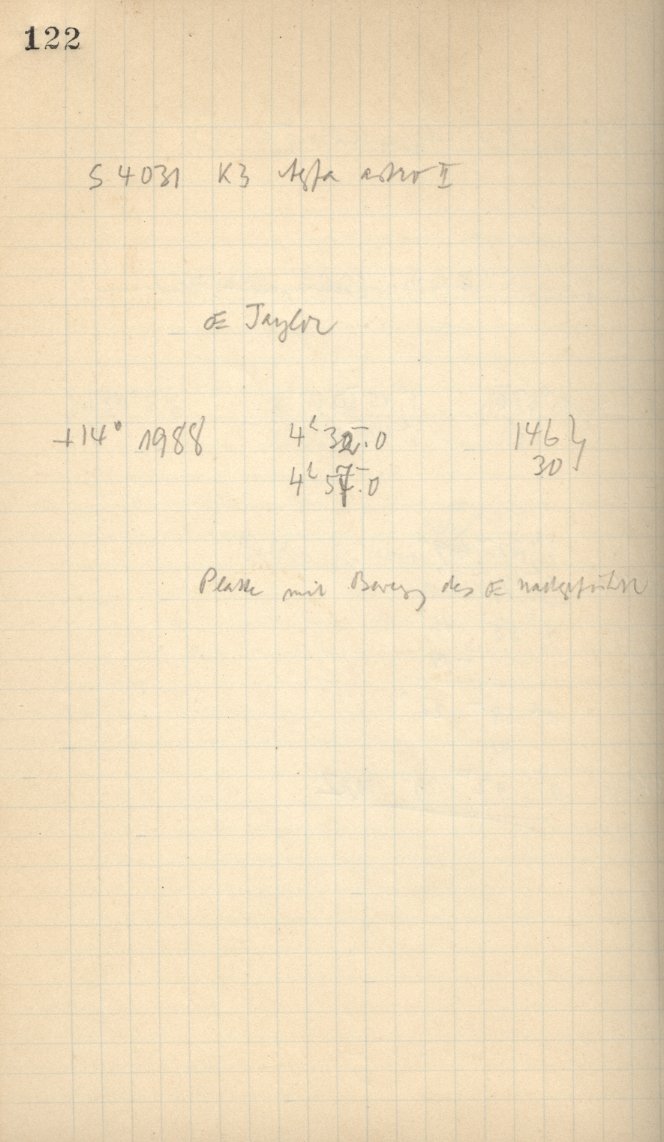 122
S 4031 K3 Agfa astro II
Œ Taylor
+14° 1988 4h 32m.0 146
4h 57m.0 30
Platte mit Bewegg des Œ nachgeführt